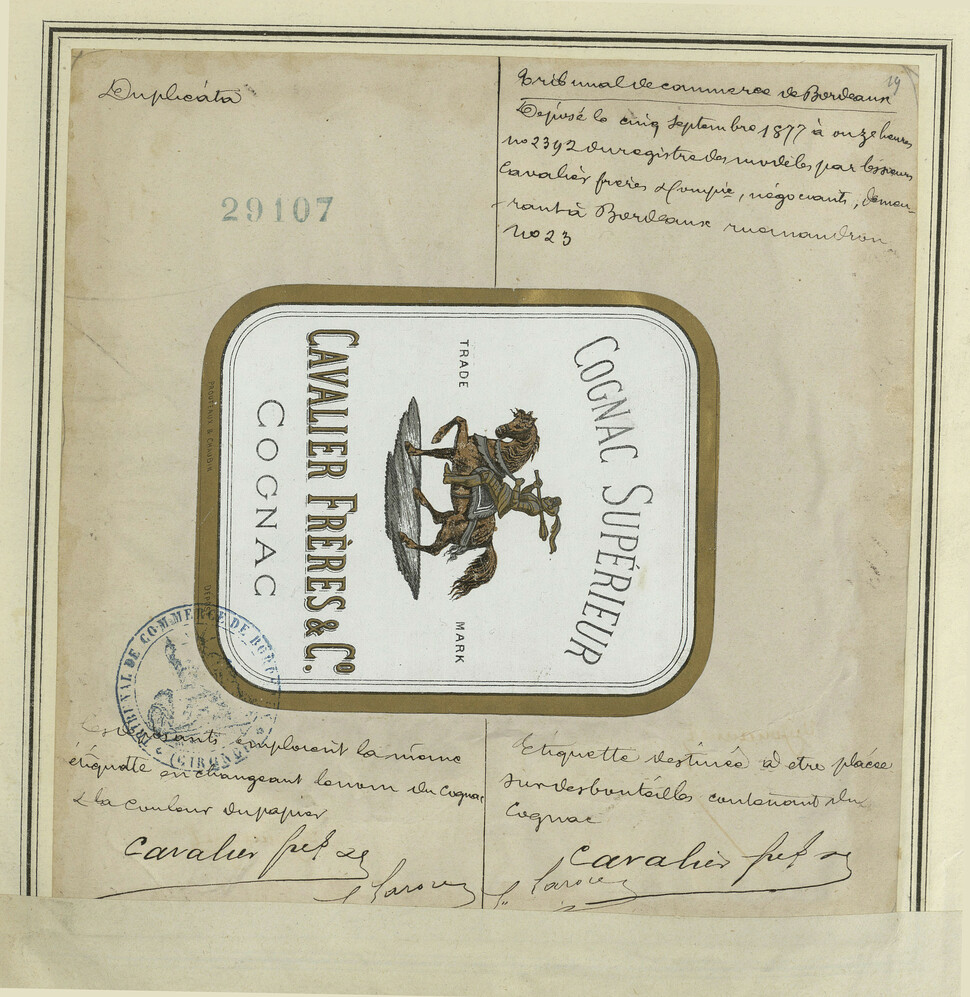 Duplicáta
29107
19
Tribunal de commerce de Bordeaux
Déposé le cinq Septembre 1877 à onze heures
no 2392 du registre des modèles par les sieurs
Cavalier frères & Compie, négociants, demeu-
-rant à Bordeaux rue mandron
No 23
COGNAC SUPÉRIEUR
TRADE MARK
CAVALIER FRÈRES & Co.
COGNAC
PROUTEAUX & CHAUBIN
TRIBUNAL DE COMMERCE DE BORDEAUX
(GIRONDE)
employent la même
étiquette en changeant le nom du Cognac
& la couleur du papier
Cavalier
Etiquette destinée à etre placée
sur des bouteilles contenant du
Cognac
Cavalier